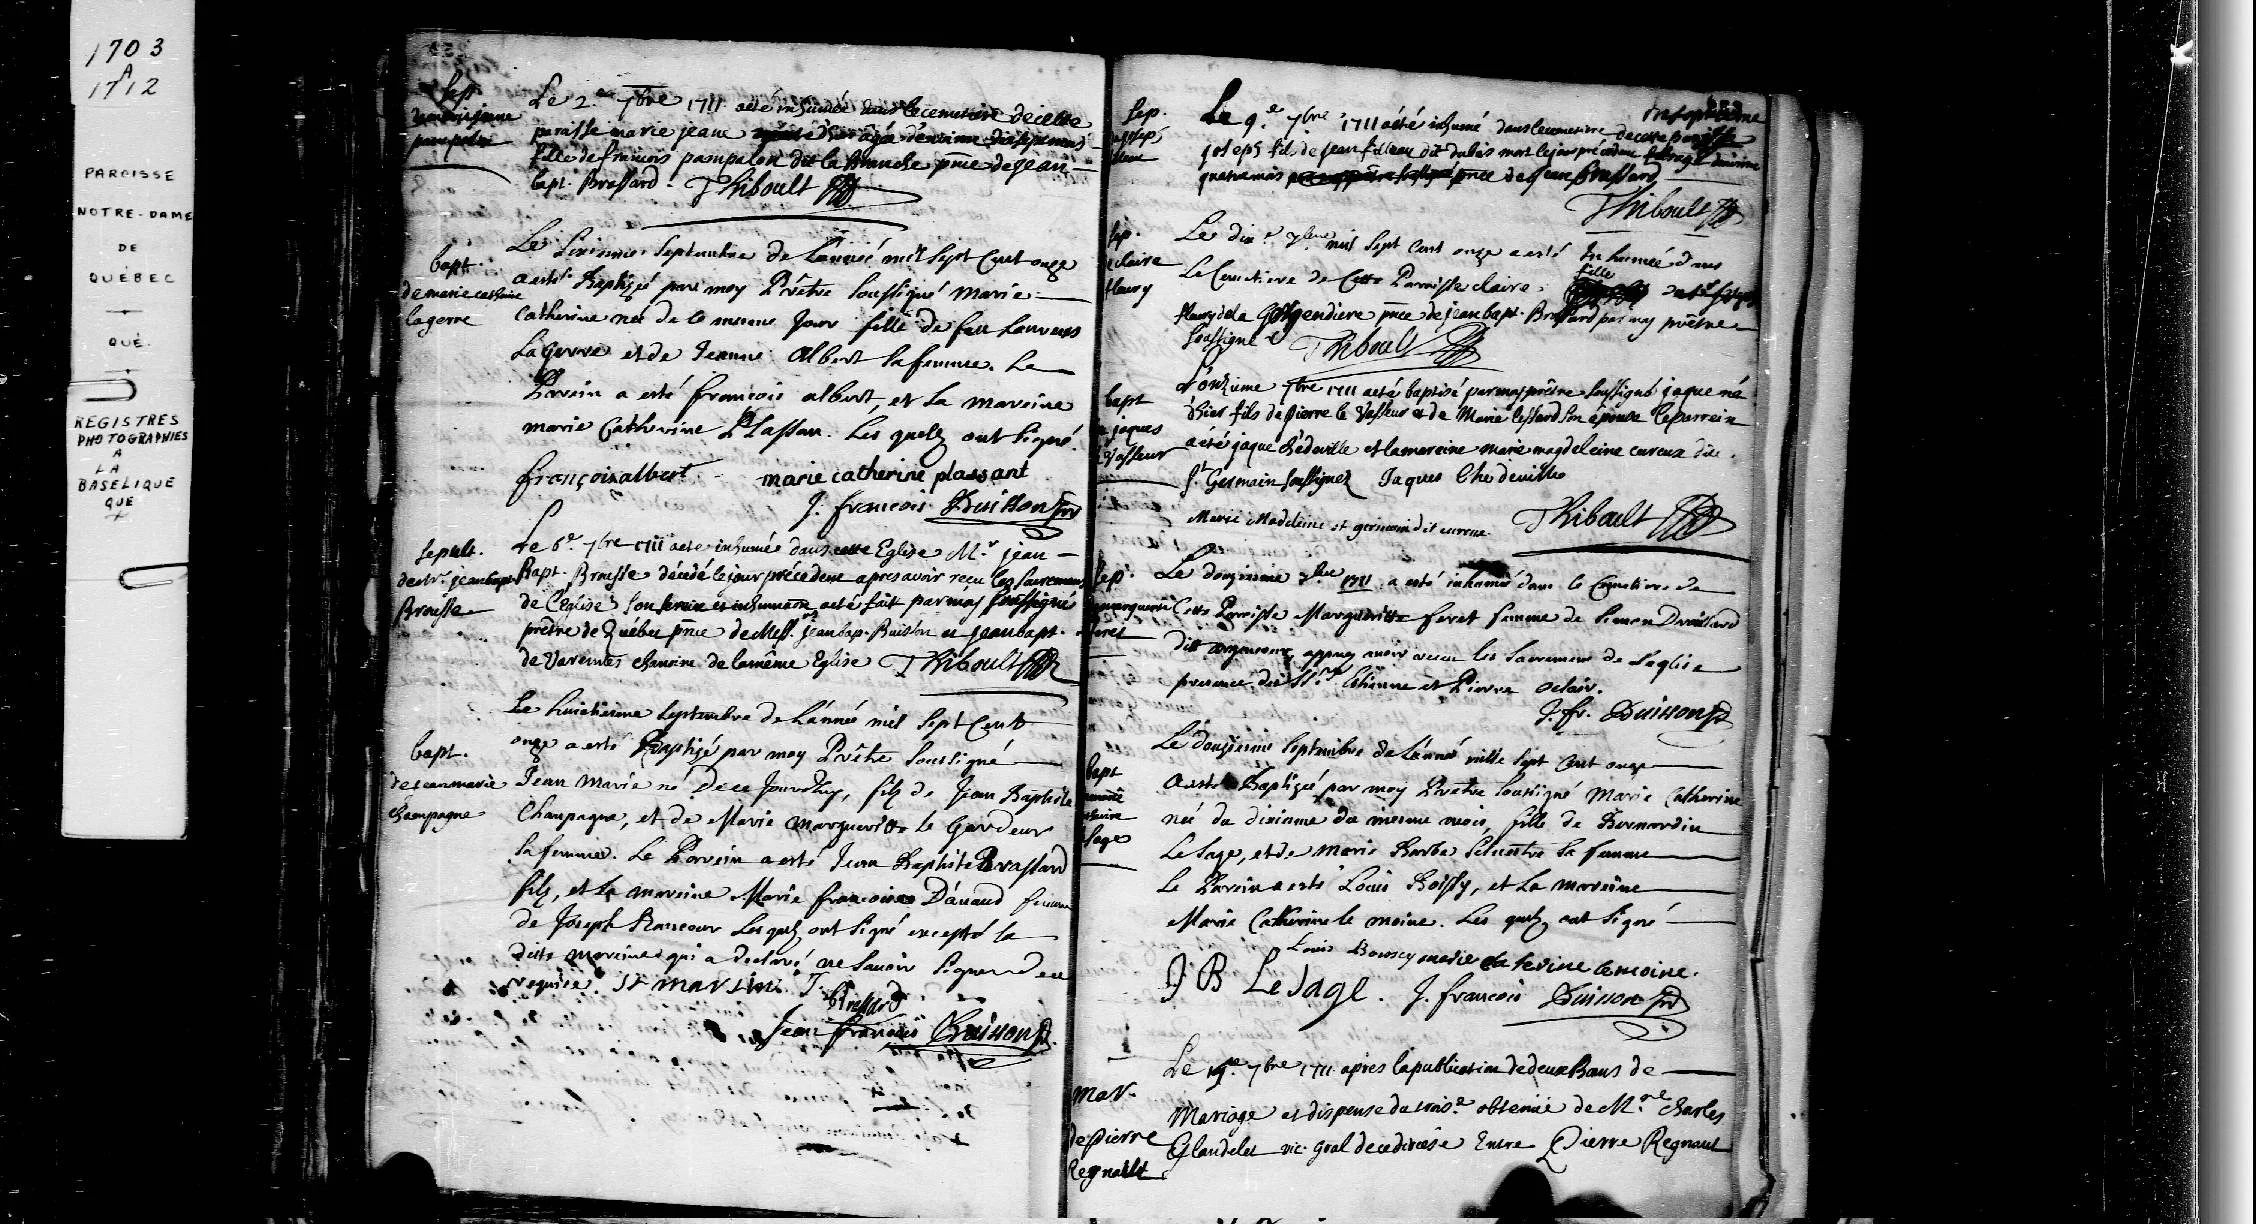 1703
A
1712
PAROISSE
NOTRE-DAME
DE
QUÉBEC
QUÉ.
REGISTRES
PHOTOGRAPHIES
A
LA
BASELIQUE
QUE
Sep.
Le 2.e 7bre 1711 a eté inhumée dans le cemetiere de cette
paroisse marie jeane
fille de francois pampalon dit la Branche pnce de jean
bapt. Brassard. Thiboult
bapt.
de marie catherine
lagerre
Le sixieme Septembre de L'année mil Sept Cent onze
a esté Baptizé par moy Prêtre Soussigné Marie
Catherine née de ce mesme Jour fille de feu Laurens
La Gerre et de Jeanne Albert sa femme. Le
Parein a esté françois albert, et la mareine
marie Catherine Plassan. Les quelz ont Signé.
françois albert marie catherine plassant
J. françois Buisson ptre
sepult.
de Mr. jean bapt.
Brousse
Le 6e. 7bre 1711 a eté inhumé dans cette Eglise Mr. jean
Bapt. Brousse décédé le jour précédent apres avoir reçu les sacremens
de L'église son et inhumation a eté fait par moy soussigné
prêtre de Québec pnce de Mess. jean bap. Buisson et jean bapt.
de Varennes chanoine de la même Eglise Thiboult
bapt.
de jean marie
champagne
Le huictieme septembre de L'année mil Sept Cent
onze a esté Baptizé par moy Prêtre Soussigné
Jean Marie né De ce Jourdhuy, filz de Jean Baptiste
Champagne, et de Marie Marguerite le Gardeur
sa femme. Le Parein a esté Jean Baptiste Brassard
filz, et La mareine Marie francoise Dánaud femme
de Joseph Rancour Les quelz ont Signé excepté la
dite mareine qui a declaré ne Scavoir Signer de ce
requise. St MARTIN. J.
Brassard
Jean françois Buisson p.
Sep.
joseph
Le 9.e 7bre 1711 a eté inhumé dans le cemetiere de cette paroisse
joseph fils de jean filteau dit dubois mort le jour précedent agé d'environ
quatre mois pnce de jean Brassard
Thiboult
Sep.
claire
fleury
Le dix.e 7bre mil Sept Cent onze a esté Inhumée dans
Le Cemetiere de Cette Paroisse claire
fille
fleury de la Gorgendiere pnce de jean bapt. Brassard par moy prêtre
soussigné Thiboult
bapt
jaques
Vasseur
L'onzieme 7bre 1711 a eté baptisé par moy prêtre soussigné jaque né
d'hier fils de pierre le Vasseur et de Marie lessard son épouse le parrein
a eté jaque Chédeville et la mareine marie magdeleine cureux dit
St Germain soussignez Jaques Chedeville
Marie Madeleine st germain dit cureux Thiboult
Sep.
marguerite
feret
Le douzieme 7bre 1711 a esté inhumée dans le Cemetiere de
Cette Paroisse Marguerite feret femme de Simon Drouillard
dit argencour, apprez avoir receu les Sacremens de l'eglise
presence des Srs. Estienne et Pierre
J. fr. Buisson p
bapt
marie
catherine
le Sage
Le douzieme Septembre de L'année mille Sept Cent onze
a esté Baptizée par moy Prêtre Soussigné Marie Catherine
née du dixieme du mesme mois, fille de Bernardin
Le Sage, et de Marie Barbe Silvestre sa femme
Le Parein a esté Louis Boissy, et La mareine
Marie Catherine le moine. Les quelz ont Signé
Louis marie caterine lemoine.
J B LeSage. J. françois Buisson ptre
mar.
de pierre
Regnault
Le 7bre 1711 apres la publication de deux Bans de
Mariage et dispense du trois.e obtenüe de Mre Charles
Glandelet vic. gnal de ce diocese Entre Pierre Regnaut